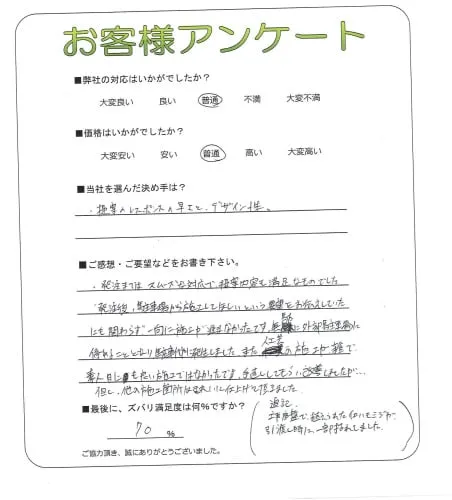 お客様アンケート
■弊社の対応はいかがでしたか?
大変良い 良い 普通 不満 大変不満
■価格はいかがでしたか?
大変安い 安い 普通 高い 大変高い
■当社を選んだ決め手は?
・提案のレスポンスの早さと、デザイン性。
■ご感想・ご要望などをお書き下さい。
・発注まではスムーズな対応で、提案内容も満足なものでした
発注後、駐車場から施工してほしいという要望をお伝えしていた
にも関わらず一向に施工が進まなかったです。 に外部駐車場に
停めることとなり 発生しました。また人工芝の施工が雑で
素人目にも 施工ではなかったです。手直ししてもらい改善しましたが…
但し、他の施工箇所はきれいに仕上げて頂きました。
■最後に、ズバリ満足度は何%ですか?
70 %
ご協力頂き、誠にありがとうございました。
追記.
工事 で
引渡し時に、一部 ました。